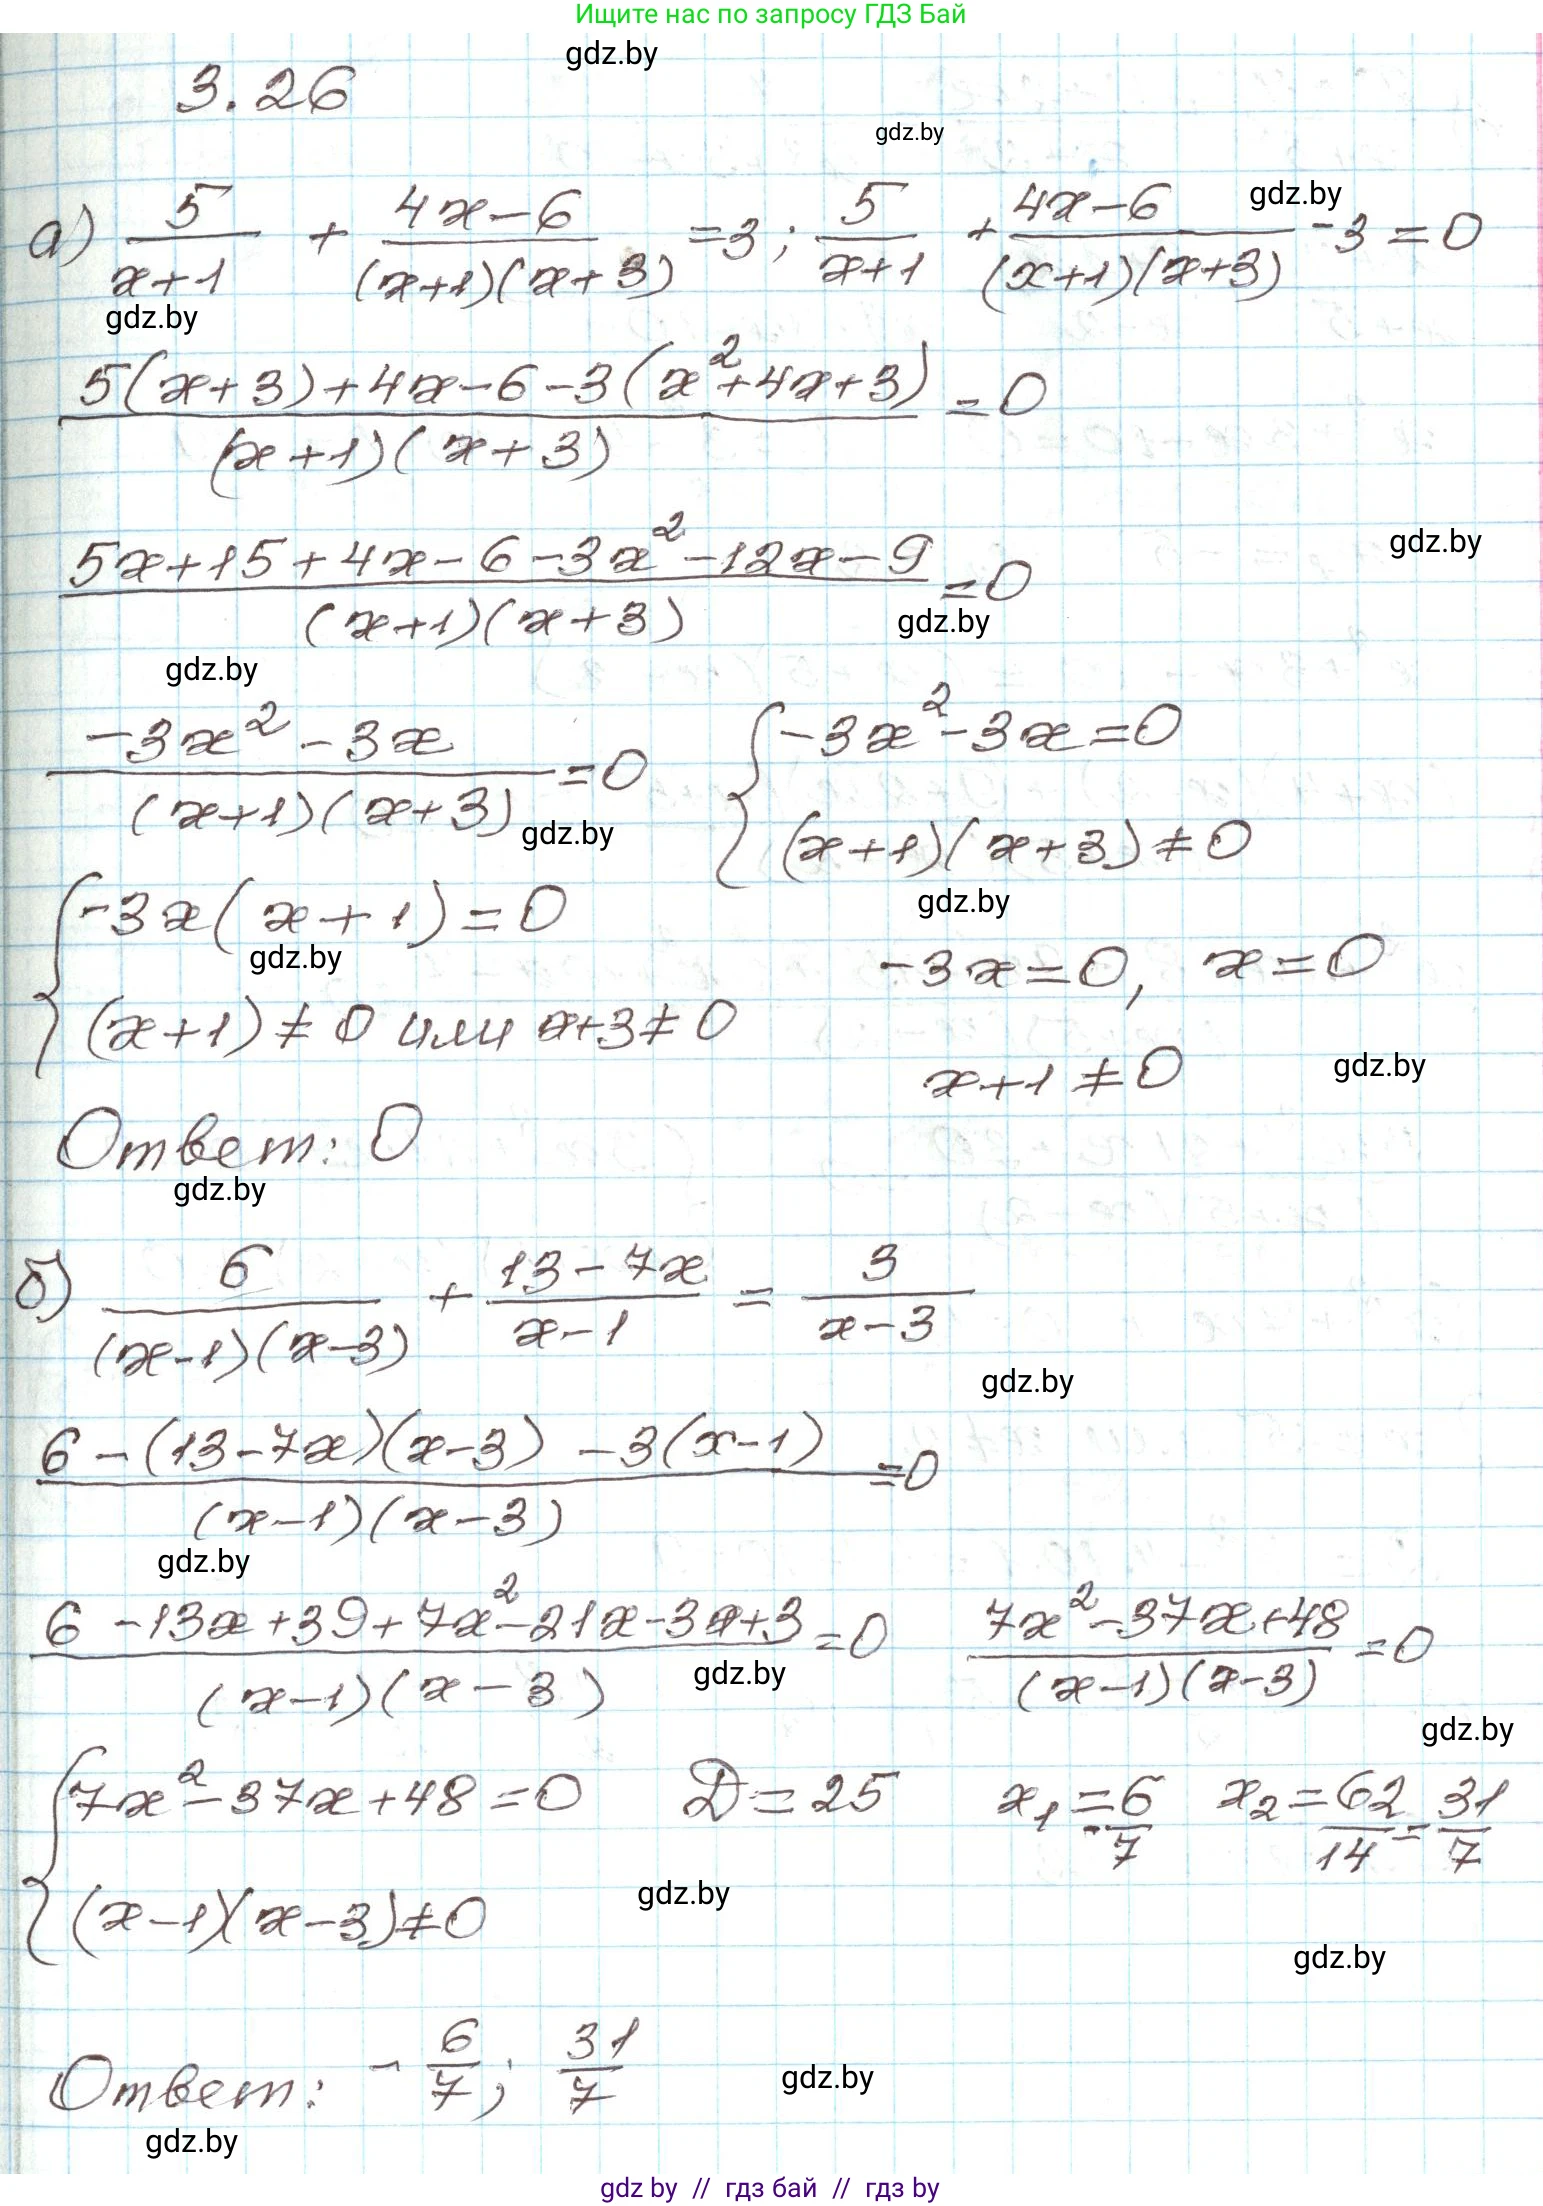 Ищите нас по запросу ГДЗ Бай
gdz.by
3.26
gdz.by
а) 5/(x+1) + (4x-6)/((x+1)(x+3)) =3; 5/(x+1) + (4x-6)/((x+1)(x+3)) -3=0
gdz.by
gdz.by
(5(x+3)+4x-6-3(x²+4x+3))/((x+1)(x+3)) =0
(5x+15+4x-6-3x²-12x-9)/((x+1)(x+3)) =0
gdz.by
gdz.by
gdz.by
(-3x²-3x)/((x+1)(x+3)) =0 { -3x²-3x=0
(x+1)(x+3)≠0
gdz.by
gdz.by
{ -3x(x+1)=0
gdz.by
-3x=0, x=0
(x+1)≠0 или x+3≠0
x+1≠0
gdz.by
Ответ: 0
gdz.by
б) 6/((x-1)(x-3)) + (13-7x)/(x-1) = 3/(x-3)
gdz.by
(6-(13-7x)(x-3)-3(x-1))/((x-1)(x-3)) =0
gdz.by
(6-13x+39+7x²-21x-3x+3)/((x-1)(x-3)) =0 (7x²-37x+48)/((x-1)(x-3)) =0
gdz.by
gdz.by
{ 7x²-37x+48=0 D=25 x₁=-6/7 x₂=62/14=31/7
(x-1)(x-3)≠0
gdz.by
gdz.by
Ответ: -6/7; 31/7
gdz.by
gdz.by
gdz by // гдз бай // gdz by